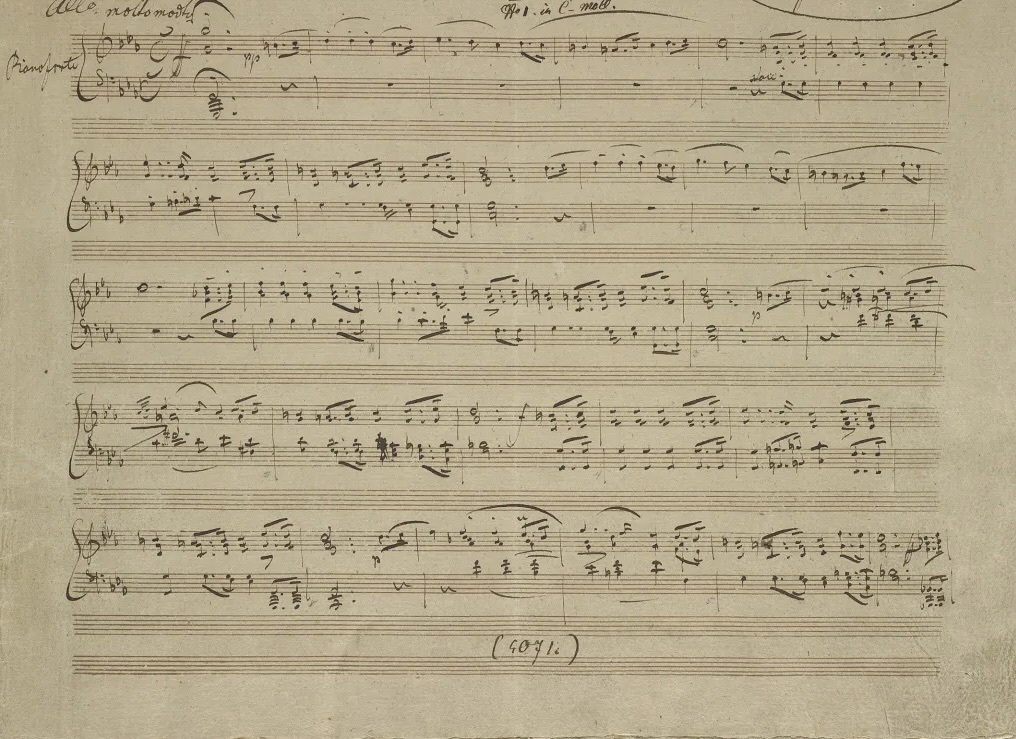 Allo. molto modto
No 1. in C-moll.
Pianoforte
pp
p
f
p
(4071.)